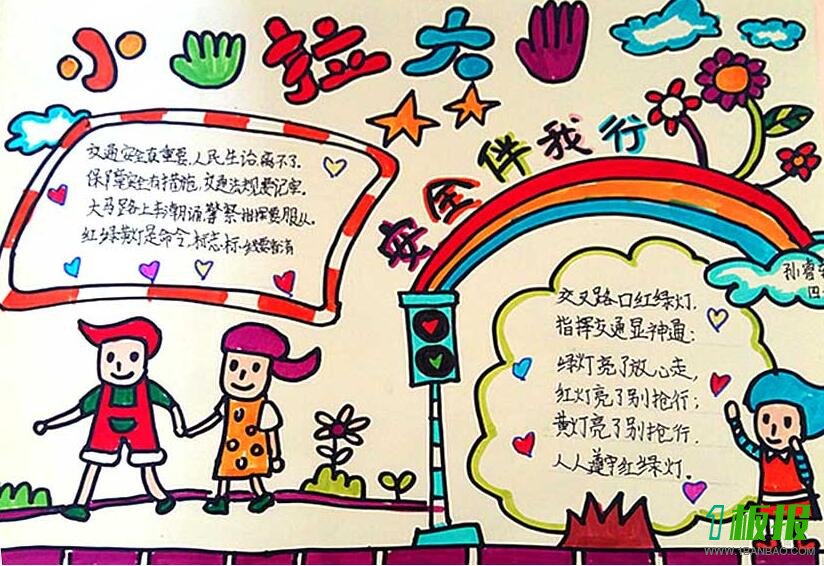 小手拉大手
安全伴我行
交通安全真重要,人民生活离不了.
保障安全有措施,交通法规要记牢.
大马路上车潮涌,警察指挥要服从.
红绿黄灯是命令,标志标线要看清
交叉路口红绿灯.
指挥交通显神通:
绿灯亮了放心走,
红灯亮了别抢行;
黄灯亮了别抢行.
人人遵守红绿灯.
孙睿
四
1板报
WWW.1BANBAO.COM